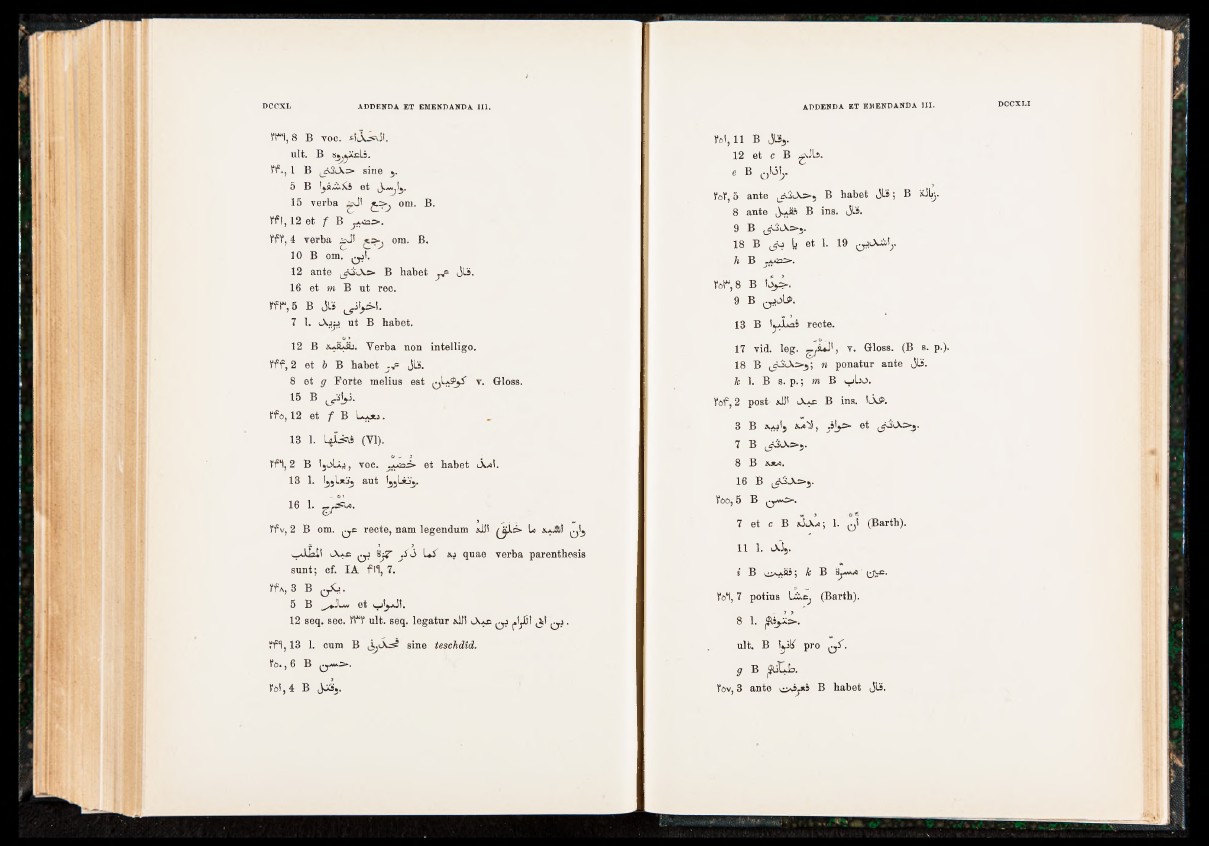 DCCXL ADDENDA ET EMENDANDA III.
٢٣٩, 8 B voc. الحذّاء.
ult. B فاعتوروه.
٢۴٠, 1 B حدثنى sine و.
5 B فكشفوا et وارسل.
15 verba رجع الخ om. B.
٢۴١, 12 et f B حضير.
٢۴٢, 4 verba رجع الخ om. B.
10 B om. ابن.
12 ante حدثنى B habet قال عمر.
16 et m B ut rec.
٢۴٣, 5 B قال اخوانى.
7 l. يزيد ut B habet.
12 B Verba non intelligo.
٢۴۴, 2 et b B habet قال عمر.
8 et g Forte melius est v. Gloss.
15 B
٢۴٥, 12 et f B
13 l. (VI).
٢۴٦, 2 B voc. خُضَيْر et habet امد.
13 l. aut
16 l. مخرج.
٢۴٧, 2 B om. عن recte, nam legendum وانّ اشبه ما خلق الله
به كما ذكر حمزة بن عبد المطّلب quae verba parenthesis
sunt; cf. IA ۴١٦, 7.
٢۴٨, 3 B يكن.
5 B سالم et
12 seq. sec. ٢٣٢ ult. seq. legatur بن ابى اكرام بن عبد الله.
٢۴٩, 13 l. cum B sine teschdid.
٢٥٠, 6 B حسن.
٢٥١, 4 B وقتل.
ADDENDA ET EMENDANDA III. DCCXLI
٢٥١, 11 B وقال.
12 et c B فالخ.
e B راذان.
٢٥٢, 5 ante وحدثنى B habet قال; B زبالة.
8 ante فقيل B ins. قال.
9 B وحدثنى.
18 B يا بنى et l. 19 راشدين.
h B حضير.
٢٥٣, 8 B
9 B هادين.
13 B فصلّبوا recte.
17 vid. leg. المفرج, v. Gloss. (B s. p.).
18 B وحدثنى; n ponatur ante قال.
k l. B s. p.; m B دباب.
٢٥۴, 2 post عبد الله B ins. هذا.
3 B لامّه وابيه, حوافر et وحدثنى.
7 B وحدثنى.
8 B معه.
16 B وحدثنى.
٢٥٥, 5 B حسن.
7 et c B l. أنْ (Barth).
11 l. وُلد.
i B فقيت; k B عين مسرّة.
٢٥٦, 7 potius رعشا (Barth).
8 l. حتوفهم.
ult. B كانوا pro كنّ.
g B
٢٥٧, 3 ante فعرفت B habet قال.